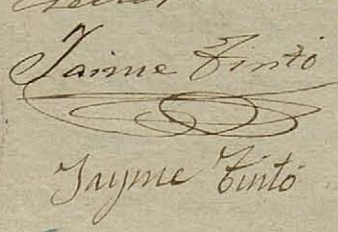 Jaime Tintó
Jayme Tintó